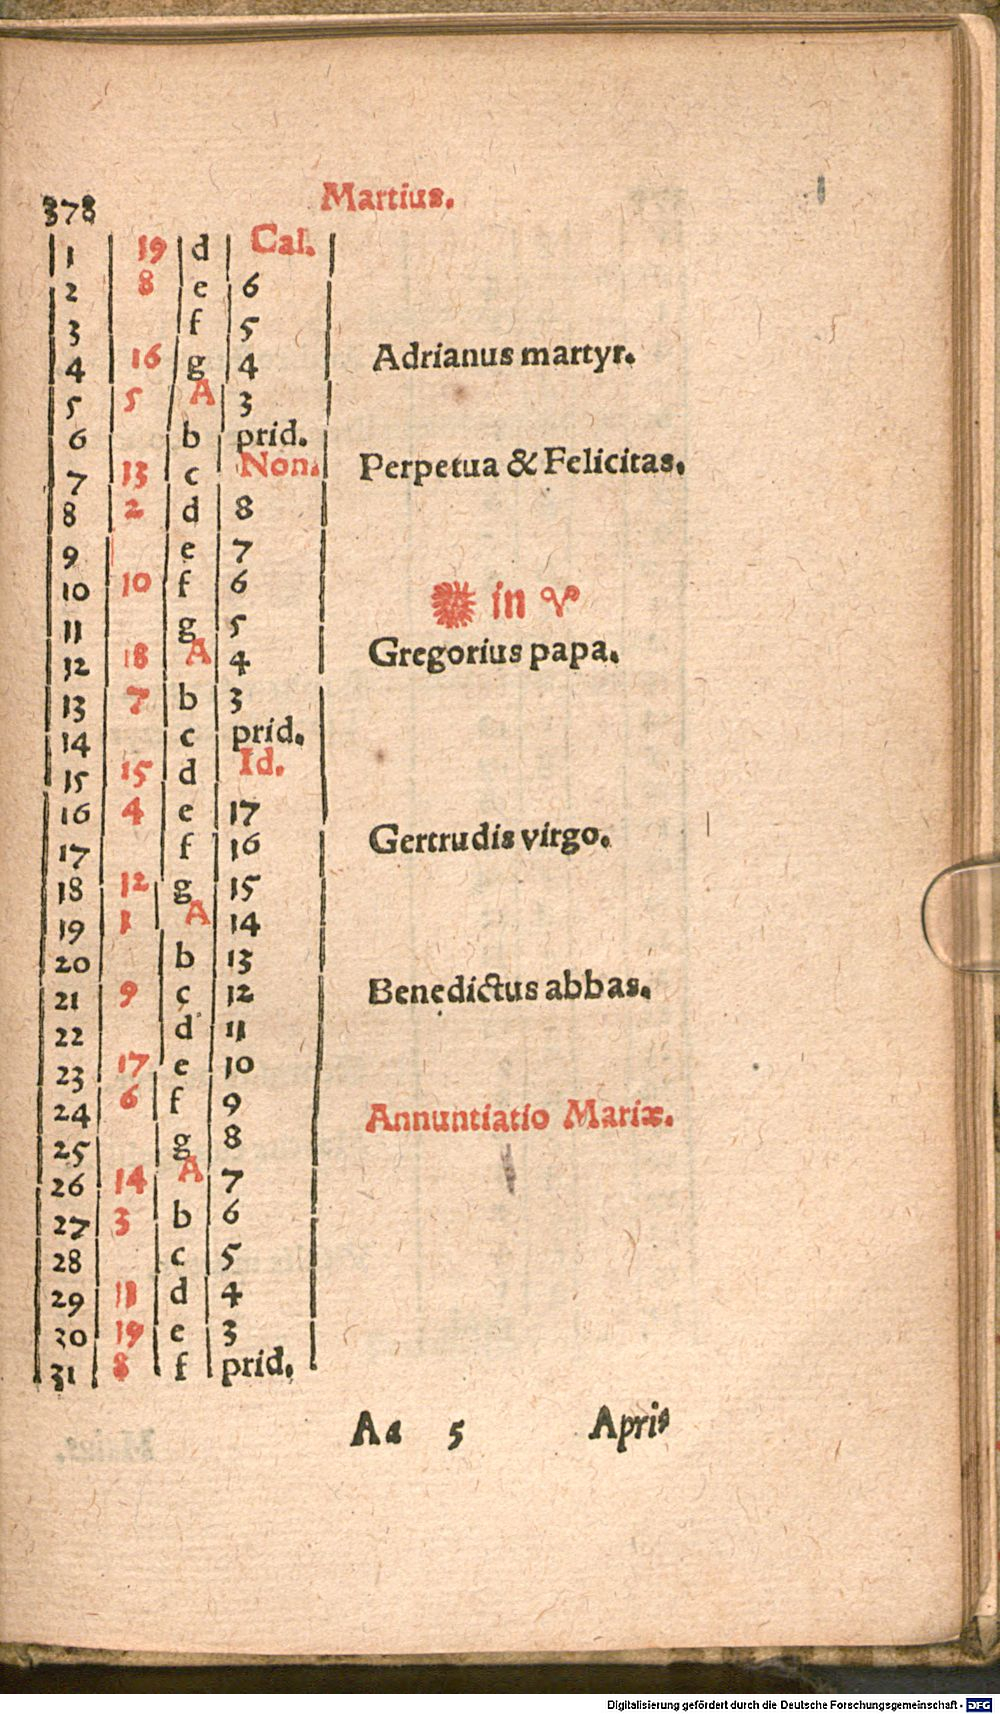 378 Martius.
1 19 d Cal.
2 8 e 6
3 f 5
4 16 g 4 Adrianus martyr.
5 5 A 3
6 b prid.
7 13 c Non. Perpetua & Felicitas.
8 2 d 8
9 e 7
10 10 f 6 in ♈
11 g 5
12 18 A 4 Gregorius papa.
13 7 b 3
14 c prid.
15 15 d Id.
16 4 e 17
17 f 16 Gertrudis virgo.
18 12 g 15
19 1 A 14
20 b 13
21 9 c 12 Benedictus abbas.
22 d 11
23 17 e 10
24 6 f 9
25 g 8 Annuntiatio Mariæ.
26 14 A 7
27 3 b 6
28 c 5
29 11 d 4
30 19 e 3
31 8 f prid.
Aa 5 Apris
Digitalisierung gefördert durch die Deutsche Forschungsgemeinschaft - DFG